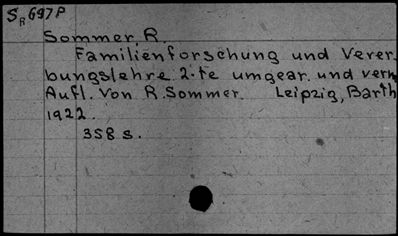 SR697P
Sommer, R.
Familienforschung und Verer-
bungslehre. 2.te umgear. und verm
Aufl. Von R. Sommer. Leipzig, Barth
1922.
358 s.